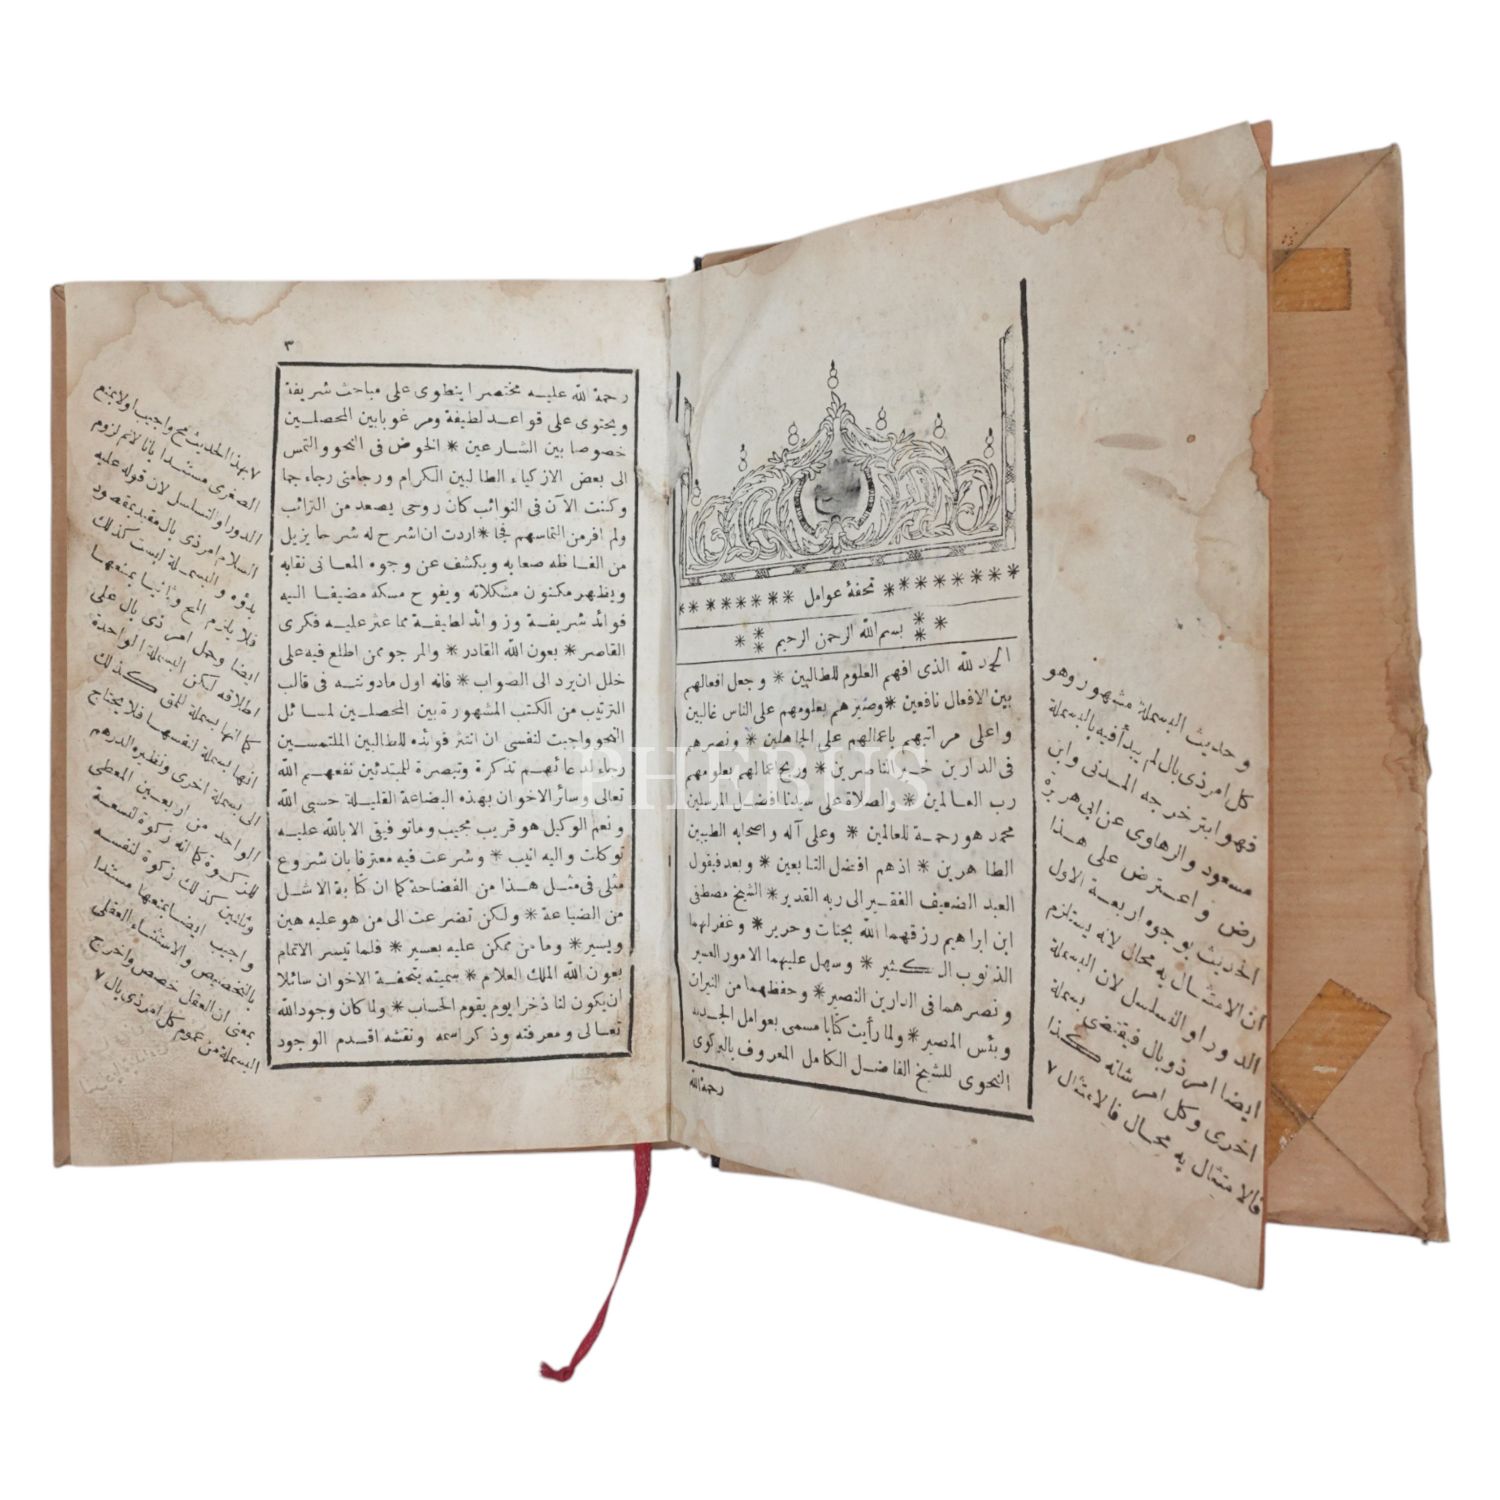 تحفۀ عوامل
بسم الله الرحمن الرحيم
الحمد لله الذى افهم العلوم للطالبين * وجعل افعالهم
بين الافعال نافعين * وصيرهم بعلومهم على الناس غالبين
واعلى مراتبهم باعمالهم على الجاهلين * ونصرهم
فى الدارين خير الناصرين * وربح عمالهم بعلومهم
رب العالمين * والصلاة على سيدنا افضل المرسلين
محمد هو رحمة للعالمين * وعلى آله واصحابه الطيبين
الطاهرين * اذهم افضل التابعين * وبعد فيقول
العبد الضعيف الفقير الى ربه القدير * الشيخ مصطفى
ابن ابراهيم رزقهما الله بجنات وحرير * وغفر لهما
الذنوب الكثير * وسهل عليهما الامور العسير
ونصرهما فى الدارين النصير * وحفظهما من النيران
وبئس المصير * ولما رأيت كتابا مسمى بعوامل الجديد
النحوى للشيخ الفاضل الكامل المعروف بالبركوى
رحمة الله
وحديث البسملة مشهور وهو
كل امر ذى بال لم يبدأ فيه بالبسملة
فهو ابتر خرجه المدنى وابن
مسعود والرهاوى عن ابى هريرة
رض واعترض على هذا
الحديث بوجوه اربعة الاول
ان الامتثال به محال لانه يستلزم
الدور او التسلسل لان البسملة
ايضا امر ذو بال فيقتضى بسملة
اخرى وكل امر شانه كذا
فالامتثال به محال فالامتثال ٧
٣
رحمة الله عليه مختصرا ينطوى على مباحث شريفة
ويحتوى على قواعد لطيفة ومرغوبا بين المحصلين
خصوصا بين الشارعين * الخوض فى النحو والتمس
الى بعض الازكياء الطالبين الكرام ورجامنى رجاء جما
وكنت الآن فى النوائب كان روسى يصعد من الترائب
ولم افر من التماسهم فجا * اردت ان اشرح له شرحا يزيل
من الفاظه صعابه ويكشف عن وجوه المعانى نقابه
ويظهر مكنون مشكلاته ويفوح مسكه مضيفا اليه
فوائد شريفة وزوائد لطيفة مما عثر عليه فكرى
القاصر * بعون الله القادر * والمرجو ممن اطلع فيه على
خلل ان يرد الى الصواب * فانه اول مادونته فى قالب
الترتيب من الكتب المشهورة بين المحصلين لمسائل
النحو واجبت لنفسى ان انثر فوائده للطالبين الملتمسين
رجاء لدعائهم تذكرة وتبصرة للمبتدئين نفعهم الله
تعالى وسائر الاخوان بهذه البضاعة القليلة حسبى الله
ونعم الوكيل هو قريب مجيب وما توفيقى الا بالله عليه
توكلت واليه انيب * وشرعت فيه معترفا بان شروع
مثلى فى مثل هذا من الفضاحة كما ان كتابة الاشل
من الضياعة * ولكن تضرعت الى من هو عليه هين
ويسير * وما من ممكن عليه بعسير * فلما تيسر الاتمام
بعون الله الملك العلام * سميته بتحفة الاخوان سائلا
ان يكون لنا ذخرا يوم يقوم الحساب * ولما كان وجود الله
تعالى ومعرفته وذكر اسمه ونقشه اقدم الوجود
٧ بهذا الحديث مح واجيب اولا بمنع
الصغرى مستندا بانا لانم لزوم
الدور او التسلسل لان قوله عليه
السلام امر ذى بال مقيد بمقصود
بدؤه والبسملة ليست كذلك
فلا يلزم المح وثانيا بمنعها
ايضا وحمل امر ذى بال على
اطلاقه لكن البسملة الواحدة
كما انها بسملة للمق كذلك
انها بسملة لنفسها فلا يحتاج
الى بسملة اخرى ونظيره الدرهم
الواحد من اربعين المعطى
للزكوة كما انه زكوة لتسعة
وثلثين كذلك زكوة لنفسه
واجيب ايضا بمنعها مستندا
بالتخصيص والاستثناء العقلى
بمعنى ان العقل خصص واخرج
البسملة من عموم كل امر ذى بال ٧
PHEBUS